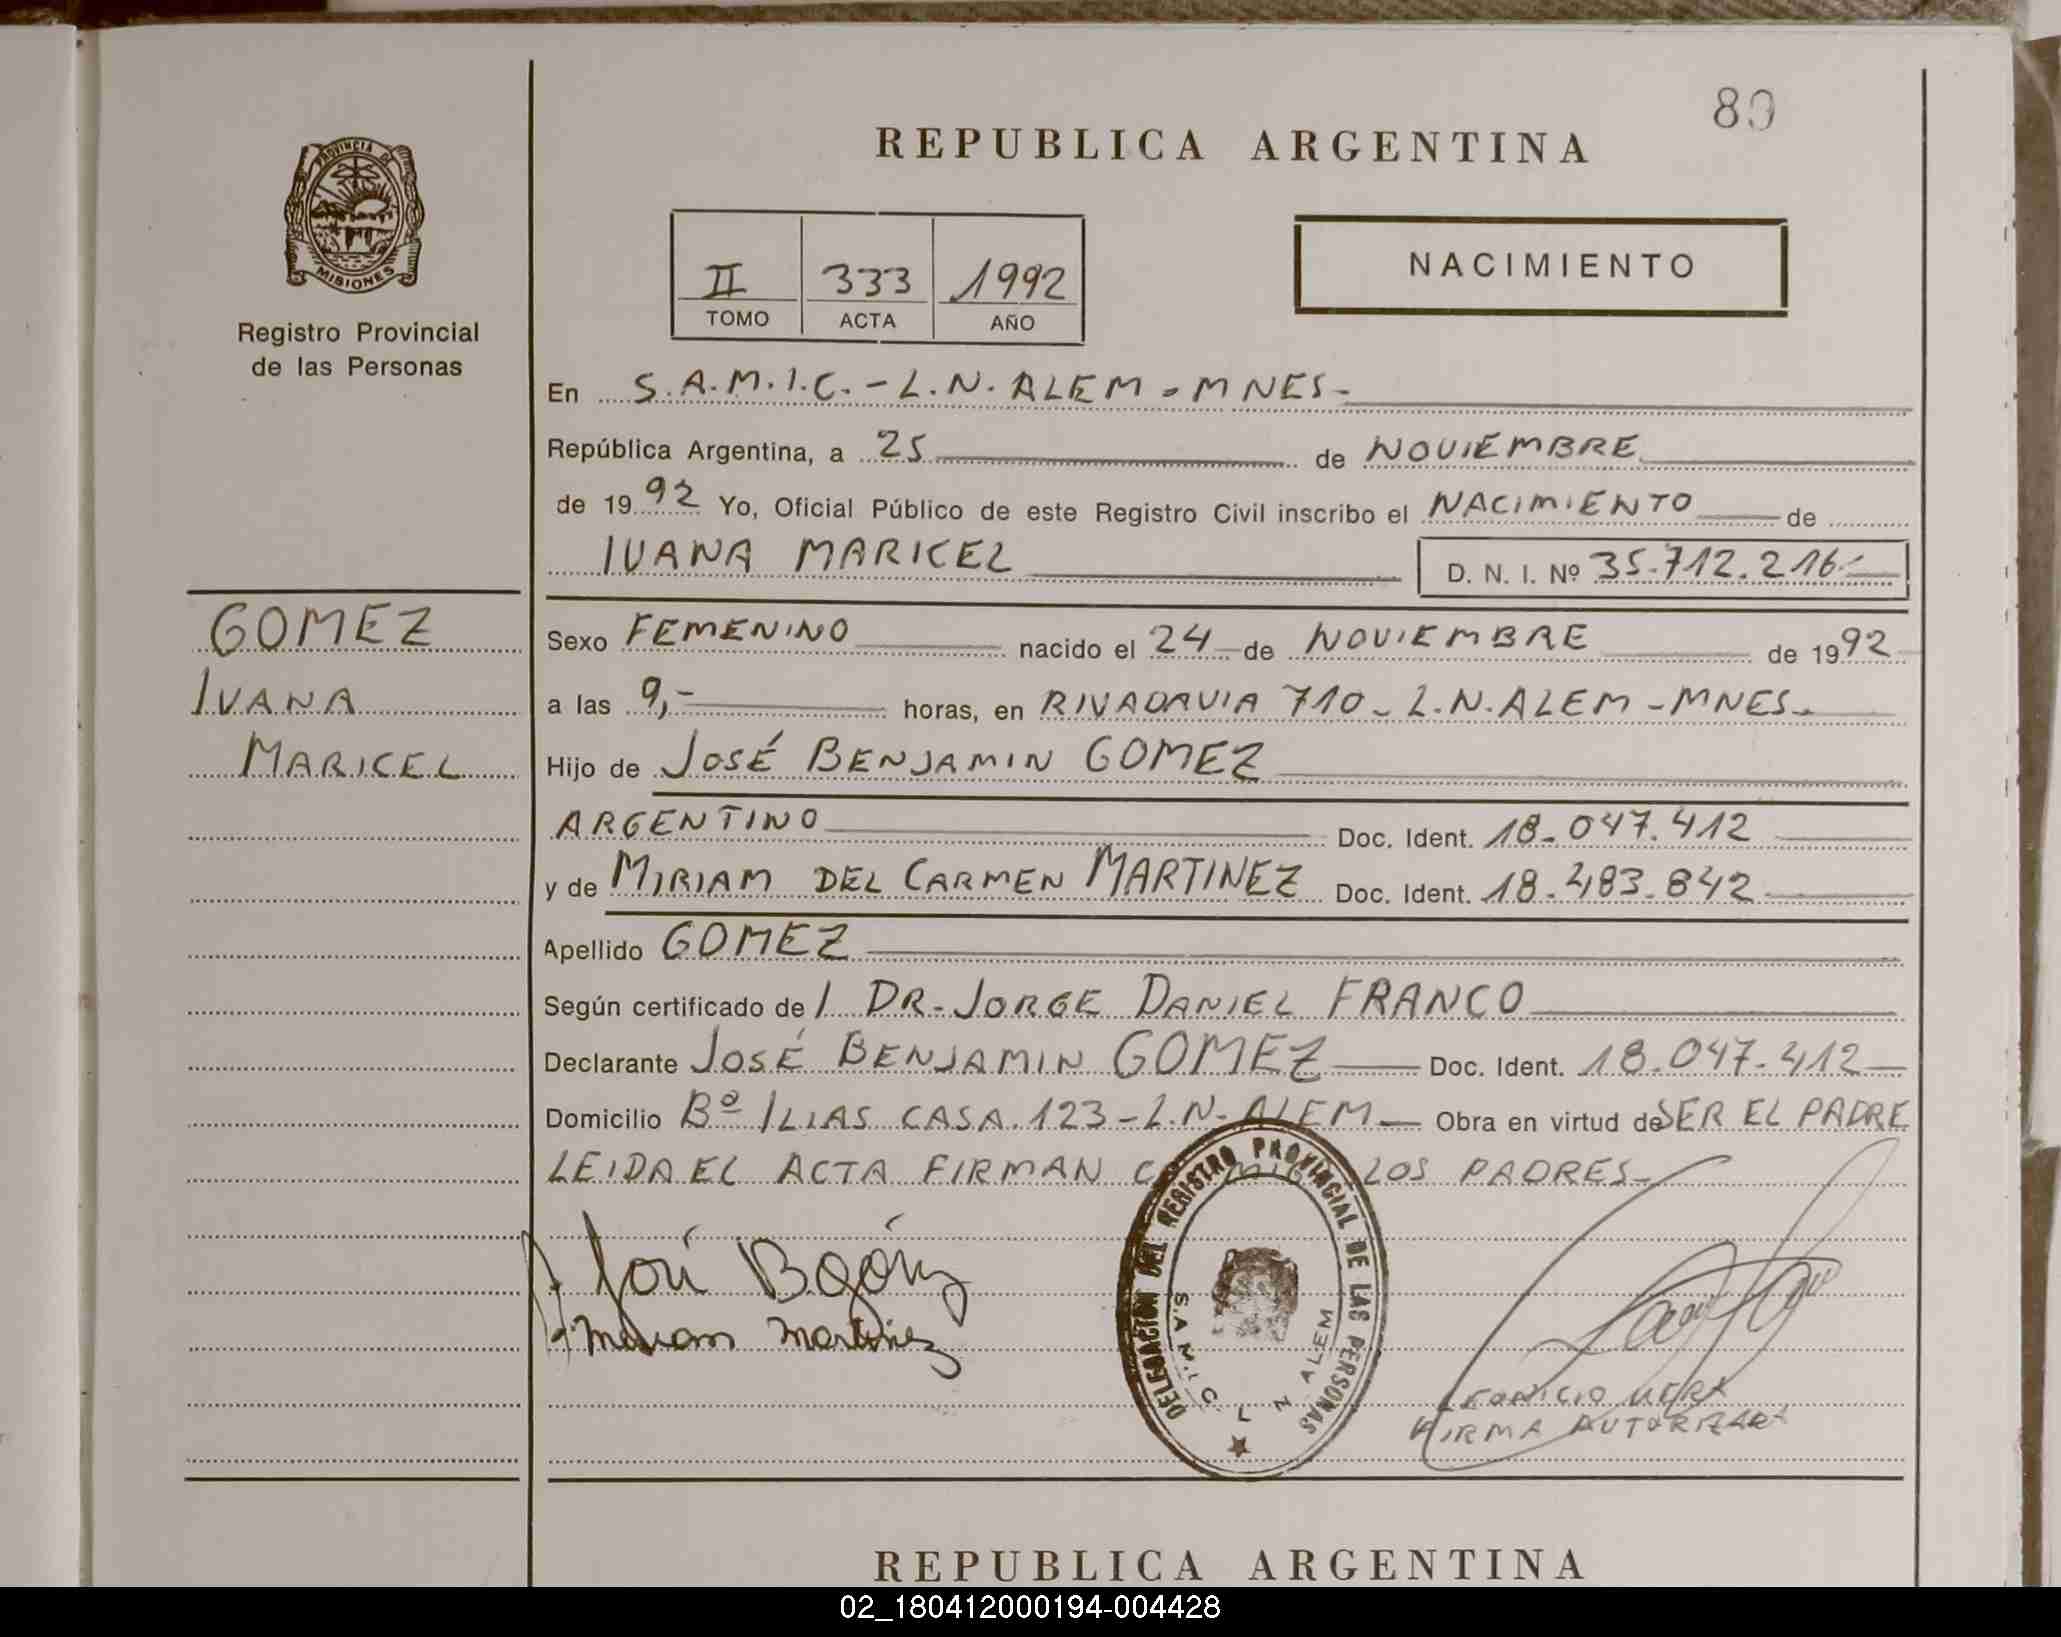 80
REPUBLICA ARGENTINA
PROVINCIA DE
MISIONES
Registro Provincial
de las Personas
II 333 1992
TOMO ACTA AÑO
NACIMIENTO
En S.A.M.I.C. - L.N. ALEM - MNES-
República Argentina, a 25 de NOVIEMBRE
de 1992 Yo, Oficial Público de este Registro Civil inscribo el NACIMIENTO de
IVANA MARICEL D. N. I. Nº 35.712.216-
GOMEZ
IVANA
MARICEL
Sexo FEMENINO nacido el 24 de NOVIEMBRE de 1992
a las 9,- horas, en RIVADAVIA 710 - L.N. ALEM - MNES.
Hijo de JOSÉ BENJAMIN GOMEZ
ARGENTINO Doc. Ident. 18.047.412
y de MIRIAM DEL CARMEN MARTINEZ Doc. Ident. 18.483.842
Apellido GOMEZ
Según certificado de / DR. JORGE DANIEL FRANCO
Declarante JOSÉ BENJAMIN GOMEZ Doc. Ident. 18.047.412
Domicilio Bº ILIAS CASA 123 - L.N. ALEM Obra en virtud de SER EL PADRE
LEIDA EL ACTA FIRMAN LOS PADRES-
José B. Gómez
Martinez
DELEGACIÓN DEL REGISTRO PROVINCIAL DE LAS PERSONAS
S.A.M.I.C. L N ALEM
LEONICIO VERA
FIRMA AUTORIZADA
REPUBLICA ARGENTINA
02_180412000194-004428